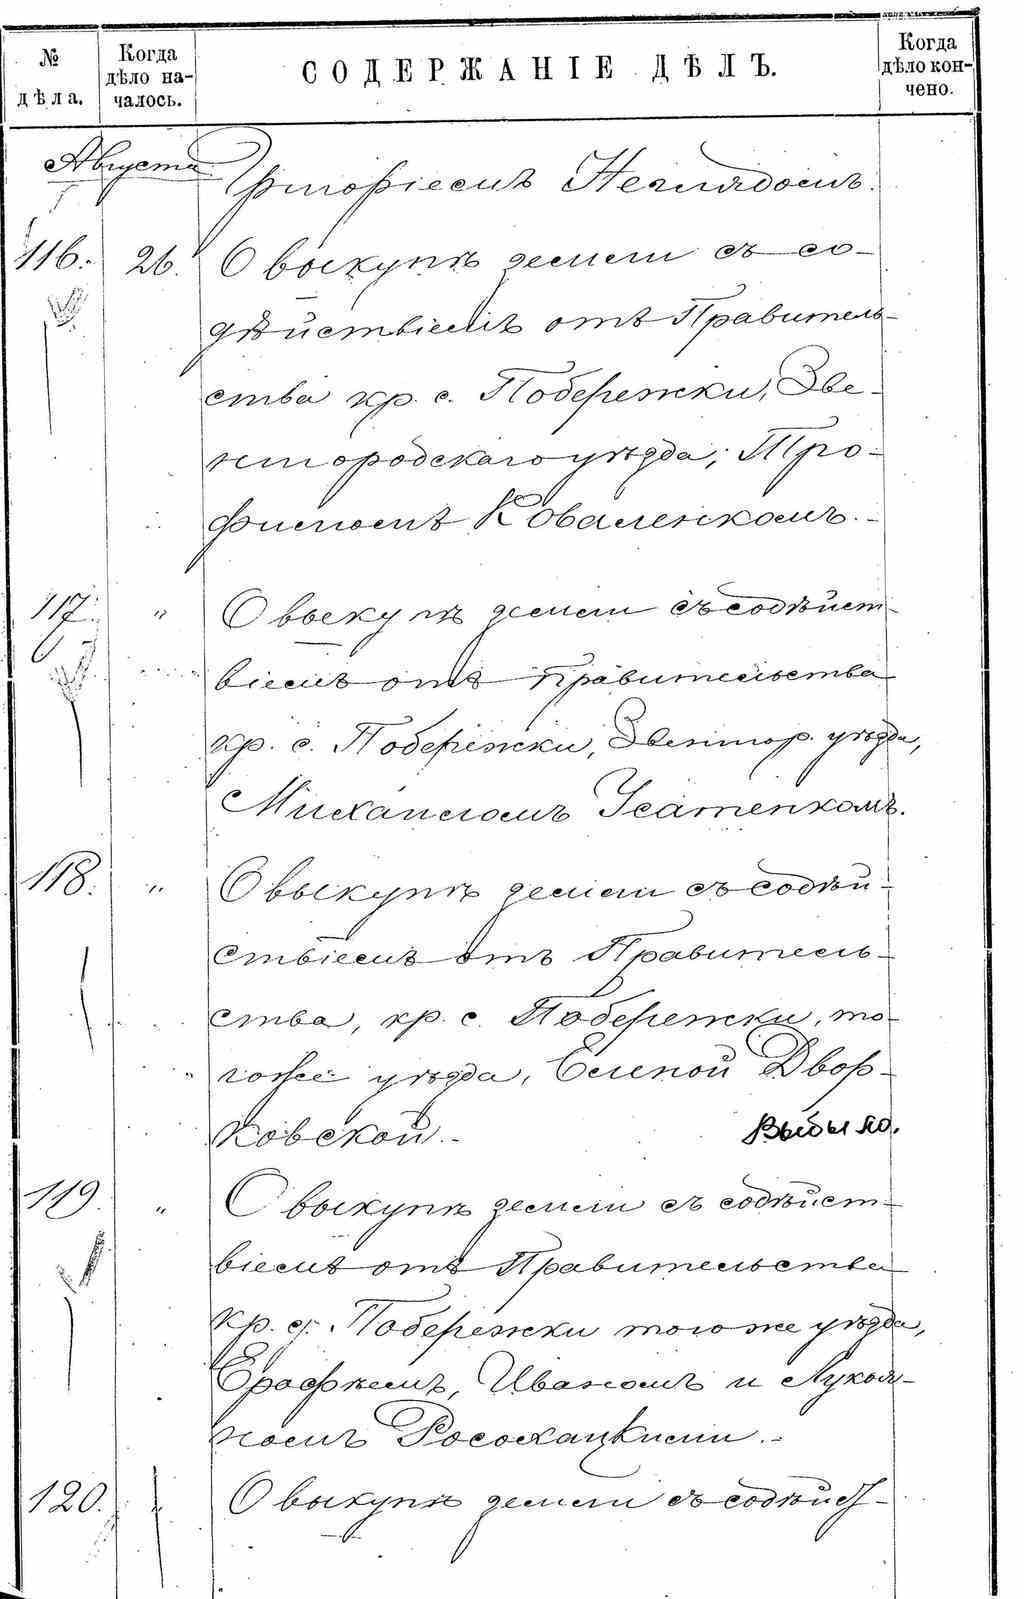 № дѣла.
Когда дѣло на-
чалось.
СОДЕРЖАНІЕ ДѢЛЪ.
Когда
дѣло кон-
чено.
Августа
Григоріемъ Неглядомъ.
116. 26. О выкупѣ земли съ со-
дѣйствіемъ отъ Правитель-
ства кр. с. Побережки, Зве-
нигородскаго уѣзда, Тро-
фимомъ Коваленкомъ.-
117. " О выкупѣ земли съ содѣйст-
віемъ отъ Правительства
кр. с. Побережки, Звенигор. уѣзда,
Михаиломъ Усатенкомъ.
118. " О выкупѣ земли съ содѣй-
ствіемъ отъ Правитель-
ства, кр. с. Побережки, то-
гоже уѣзда, Еленой Двор-
ковской.- Выбыло.
119. " О выкупѣ земли съ содѣйст-
віемъ отъ Правительства
кр. с. Побережки тогоже уѣзда,
Ерофѣемъ, Иваномъ и Лукья-
номъ Россохацкими.-
120. " О выкупѣ земли съ содѣйст-